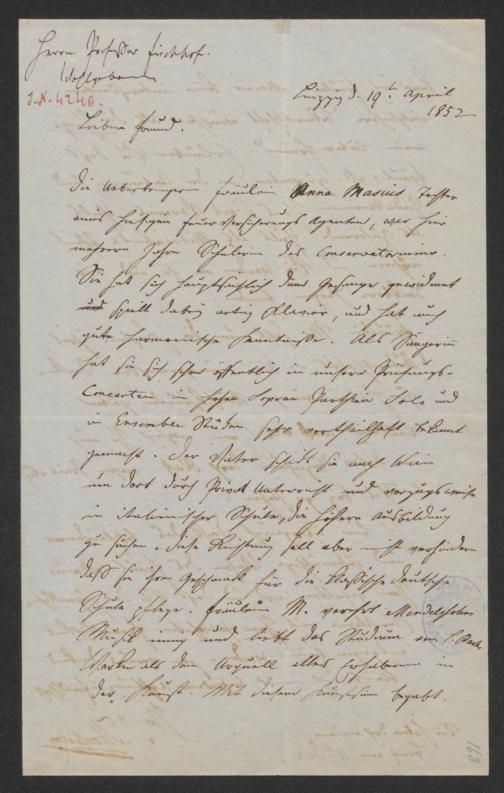 Herrn Professor Fischhof.
Wohlgeboren
J.N. 4240.
Leipzig d. 19ten April
1852
Lieber Freund.
Die Ueberbringerin Fräulein Anna Masius Tochter
eines hiesigen Feuer Versicherungs Agenten, war hier
mehrere Jahre Schülerin des Conservatoriums.
Sie hat sich hauptsächlich dem Gesange gewidmet
und spielt dabei artig Klavier, und hat auch
gute harmonische Kenntniße. Als Sängerin
hat sie sich schon öffentlich in unsern Prüfungs-
Concerten in hohen Sopran Parthien Solo und
in Ensemble Stücken sehr vortheilhaft bekannt
gemacht. Der Vater schickt sie nach Wien
um dort durch Privat Unterricht und vorzugsweise
in italienischer Schule, die höhere Ausbildung
zu suchen. Diese Richtung soll aber nicht verhindern
daß sie ihren Geschmack für die klassische deutsche
Schule pflege. Fräulein M. verehrt Mendelssohns
Musik innig und liebt das Studium von S. Bachs
Werken als dem Urquell alles Erhabenen in
der Kunst. Mit diesem begabt,
163